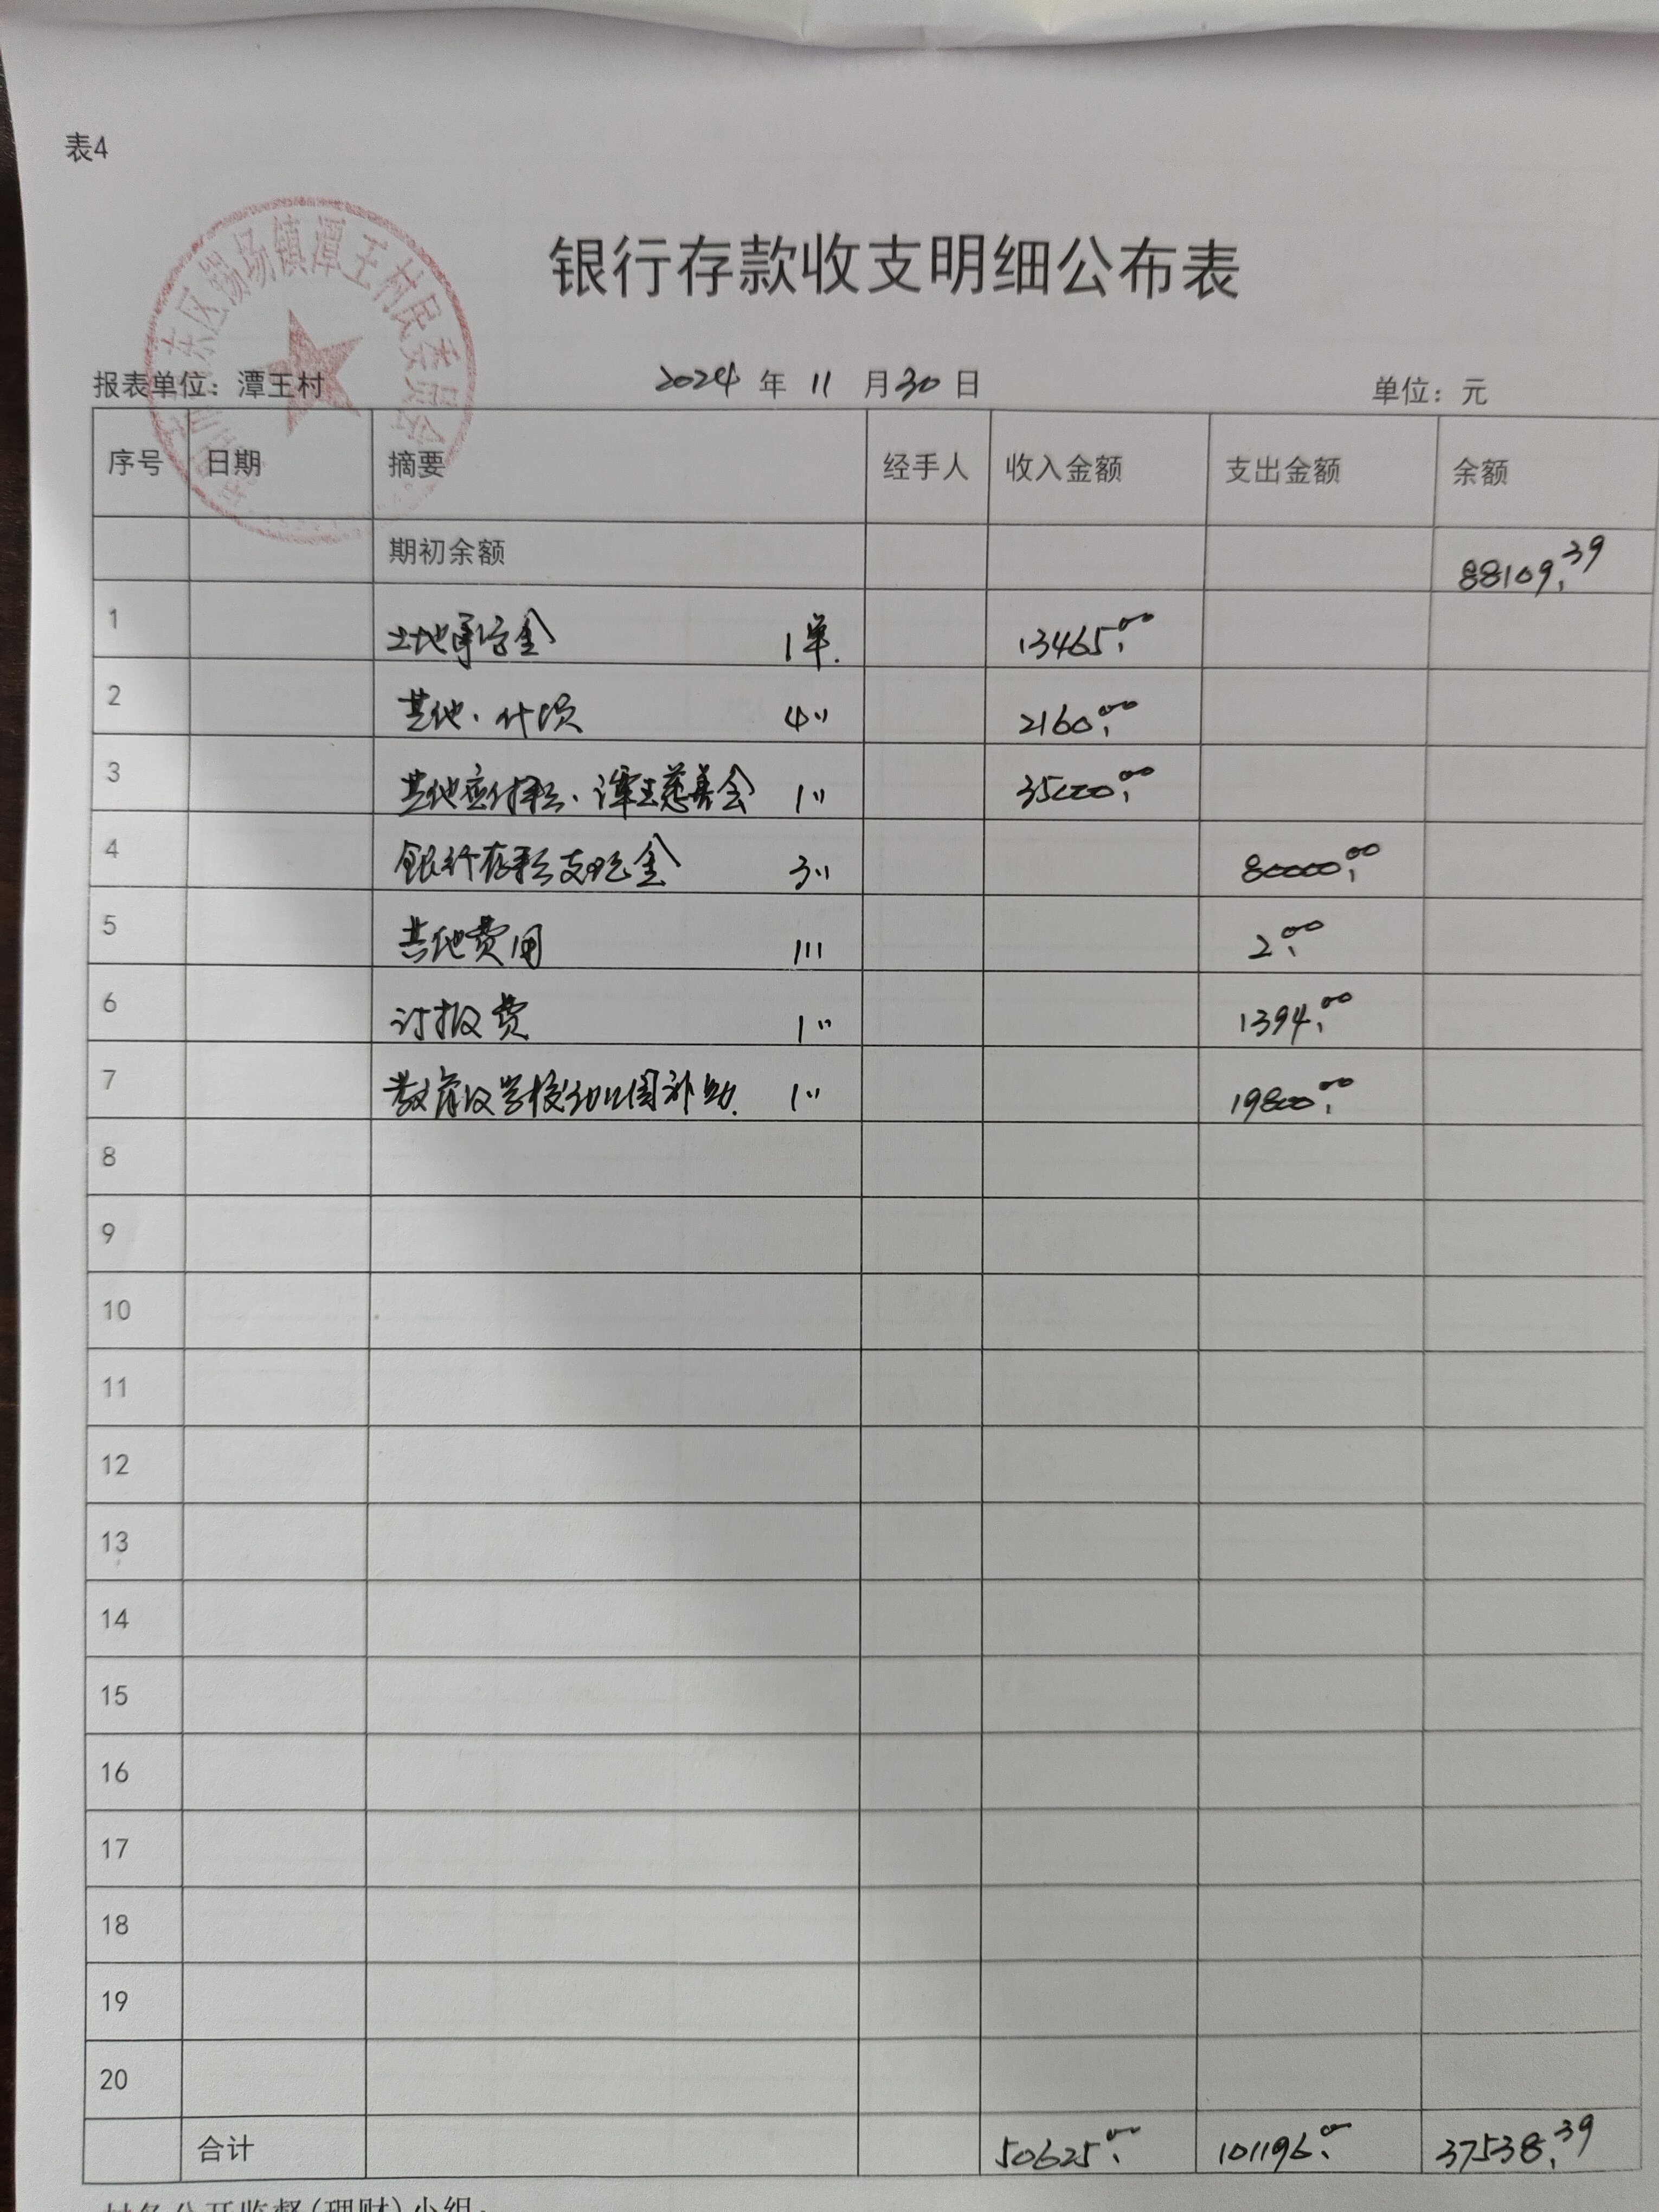 表4
东区锡场镇潭王村民委员会
银行存款收支明细公布表
报表单位：潭王村 2024 年 11 月 30 日 单位：元
序号 日期 摘要 经手人 收入金额 支出金额 余额
期初余额 88109.39
1 土地承包金 1单. 13465.00
2 其他. 什项 4〃 2160.00
3 其他应付款. 潭王慈善会 1〃 35000.00
4 银行存款支现金 3〃 80000.00
5 其他费用 1〃 2.00
6 订报费 1〃 1394.00
7 教育及学校幼儿园补助. 1〃 19800.00
8
9
10
11
12
13
14
15
16
17
18
19
20
合计 50625.00 101196.00 37538.39
村务公开监督(理财)小组：